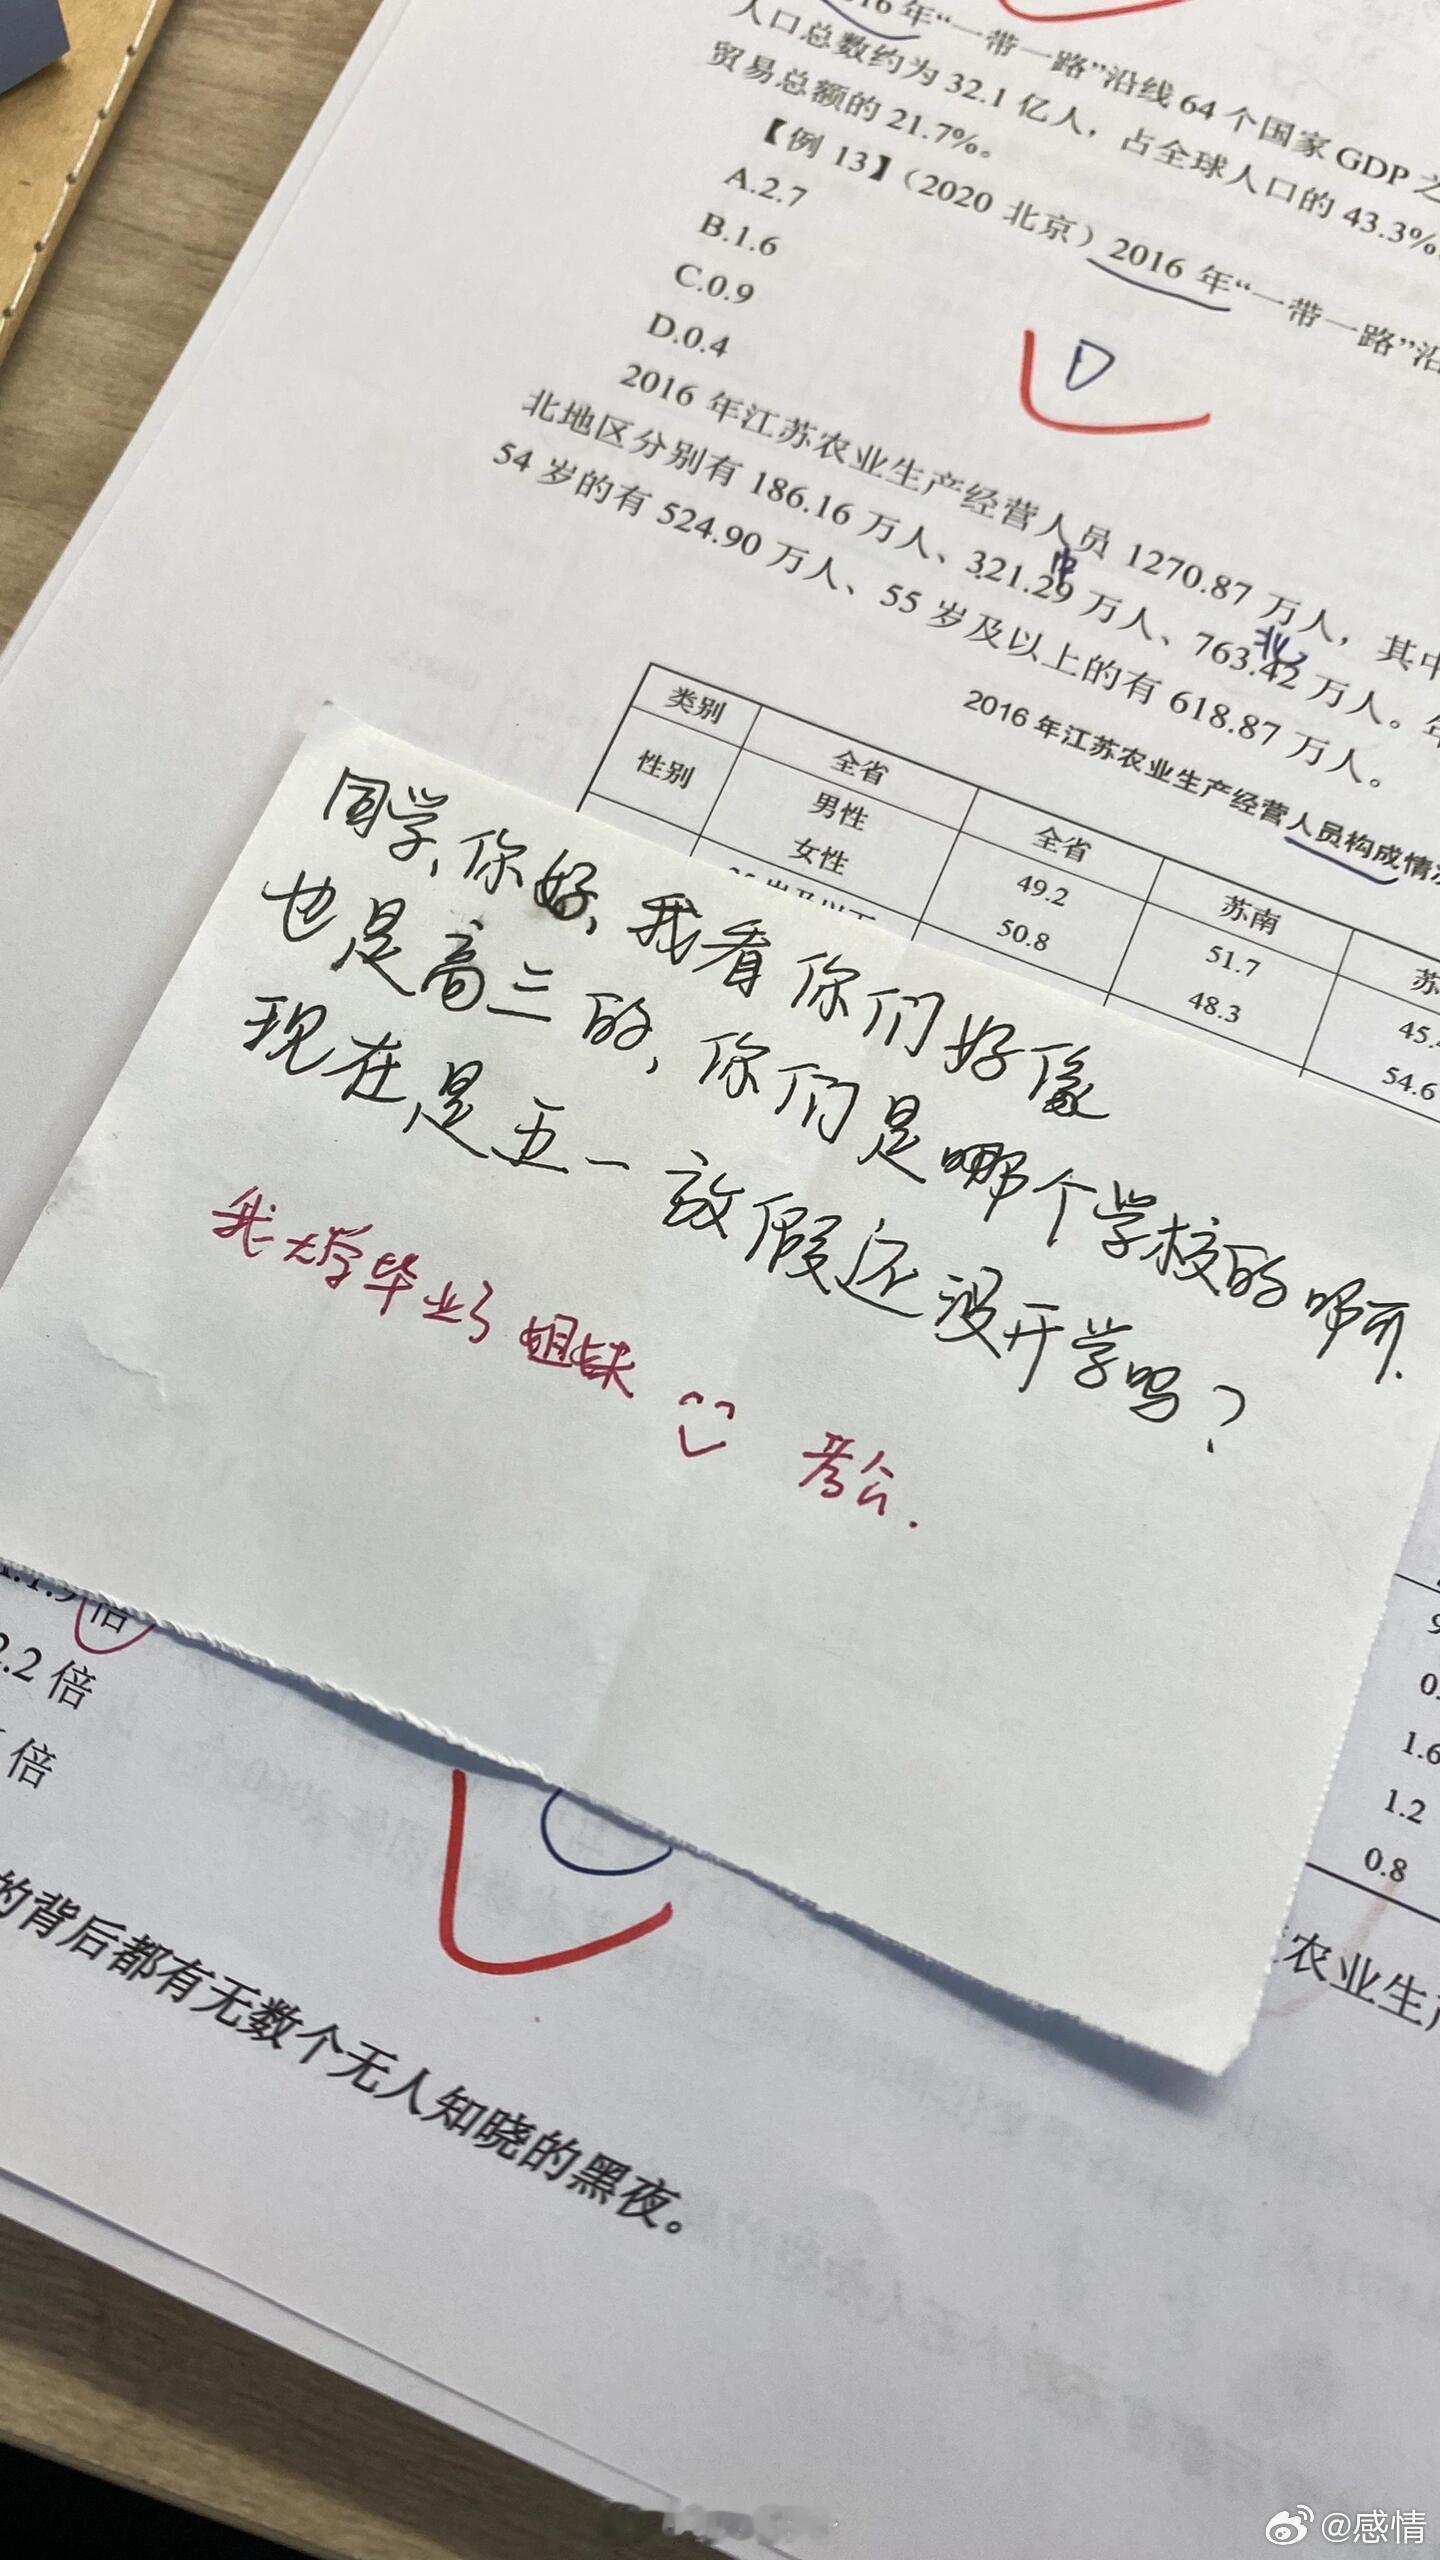 16年“一带一路”沿线64个国家GDP之
人口总数约为32.1亿人，占全球人口的43.3%
贸易总额的21.7%。
【例13】（2020北京）2016年“一带一路”沿
A.2.7
B.1.6
C.0.9
D.0.4
D
2016年江苏农业生产经营人员1270.87万人，其中
北地区分别有186.16万人、321.29万人、763.42万人。年
中
北
54岁的有524.90万人、55岁及以上的有618.87万人。
2016年江苏农业生产经营人员构成情况
类别 全省 全省 苏南 苏
性别 男性 49.2 51.7 45.
女性 50.8 48.3 54.6
同学,你好,我看你们好像
也是高三的,你们是哪个学校的啊.
现在是五一放假还没开学吗?
我大学毕业了 姐妹 考公.
倍
2.2倍
倍
0.
1.6
1.2
0.8
农业生产
的背后都有无数个无人知晓的黑夜。
@感情